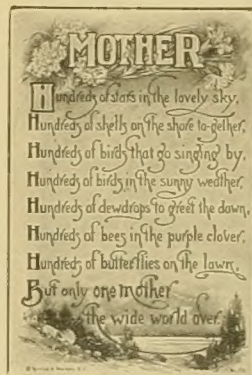 MOTHER
Hundreds of stars in the lovely sky,
Hundreds of shells on the shore to-gether,
Hundreds of birds that go singing by,
Hundreds of birds in the sunny weather,
Hundreds of dewdrops to greet the dawn,
Hundreds of bees in the purple clover,
Hundreds of butterflies on the lawn,
But only one mother
the wide world over.